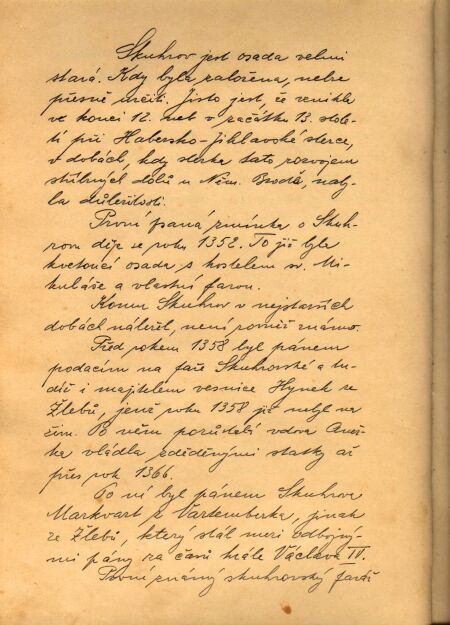 Skuhrov jest osada velmi
stará. Kdy byla založena, nelze
přesně určiti. Jisto jest, že vznikla
ve konci 12. neb v začátku 13. stole-
tí při Habersko-Jihlavské stezce,
v dobách, kdy stezka tato rozvojem
stříbrných dolů u Něm. Brodě, naby-
la důležitosti.
První psaná zmínka o Skuh-
rovu děje se roku 1352. To již byla
kvetoucí osada s kostelem sv. Mi-
kuláše a vlastní farou.
Komu Skuhrov v nejstarších
dobách náležel, není rovněž známo.
Před rokem 1358 byl pánem
podacím na faře Skuhrovské a tu-
díž i majitelem vesnice Hynek ze
Žlebů, jenž roku 1358 již nebyl na
živu. Po něm pozůstalá vdova Aneš-
ka vládla zděděnými statky až
přes rok 1366.
Po ní byl pánem Skuhrova
Markvart z Vartemberka, jinak
ze Žlebů, který stál mezi odbojný-
mi pány za časů krále Václava IV.
První známý skuhrovský farář